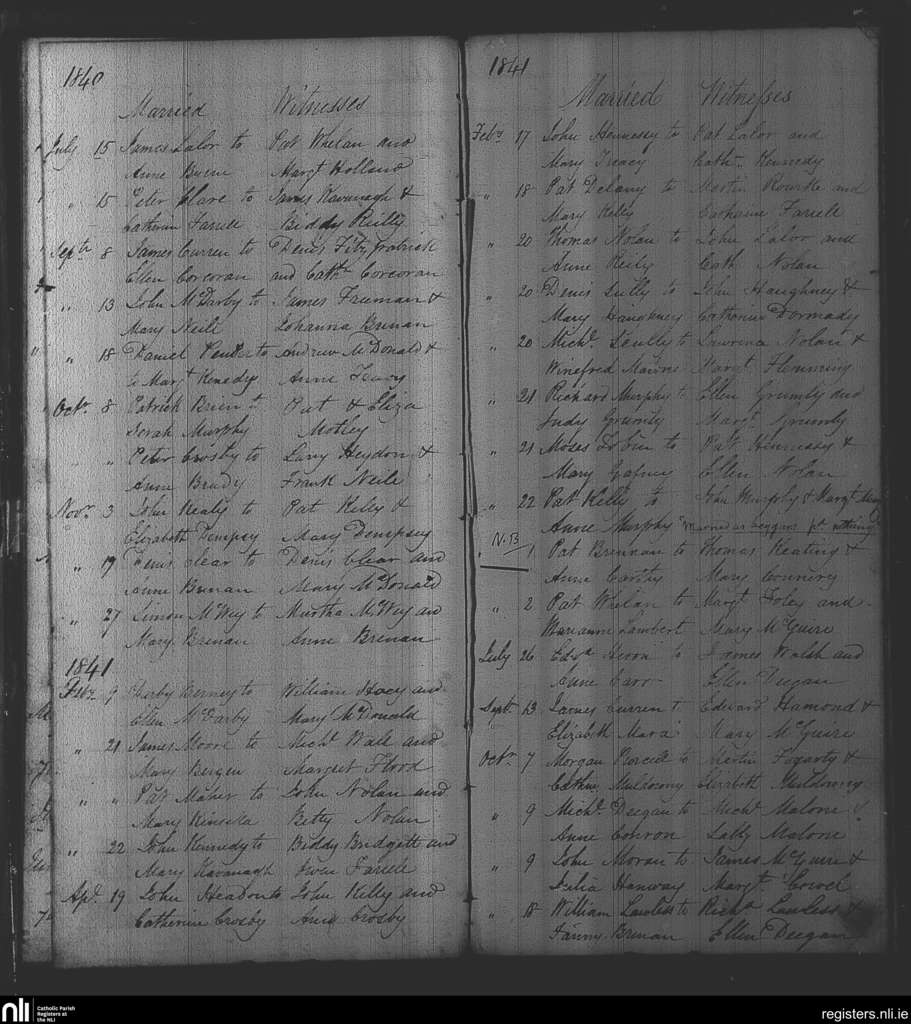 1840
Married Witnesses
July 15 James Lalor to Pat Whelan and
Anne Margt Holland
" 15 Peter Clare to James Kavanagh &
Catherin Farrell Biddy Reilly
Septr 8 James Curren to Denis Fitzpatrick
Ellen Corcoran and Cathn Corcoran
" 13 John McDarby to James Freeman &
Mary Neill Johanna Brenan
" 18 Daniel to Andrew McDonald &
to Margt Kenedy Anne Tracy
Octr 8 Patrick Brien to Pat & Eliza
Sarah Murphy Motley
" Peter Crosby to Lary Heydon &
Anne Brady Frank Neile
Novr 3 John Healy to Pat Kelly &
Elizabeth Dempsy Mary Dempsey
" 19 Denis Clear to Denis Clear and
Anne Brenan Mary McDonald
" 27 Simon McWey to Murtha McWey and
Mary Brenan Anne Brenan
1841
Febry 9 Darby to William Hoey and
Ellen McDarby Mary McDonald
" 21 James Moore to Michl Wall and
Mary Bergen Margret Flood
" " Pat Maher to John Nolan and
Mary Kinsela Betty Nolan
" 22 John Kennedy to Biddy Bridgett and
Mary Kavanagh Owen Farrell
Apl 19 John Headon to John Kelly and
Catherine Crosby Anne Crosby
1841
Married Witnesses
Febry 17 John Hennessy to Pat Lalor and
Mary Treacy Cathn Kennedy
" 18 Pat Delany to Martin Rourke and
Mary Kelly Catherine Farrell
" 20 Thomas Nolan to John Lalor and
Anne Reily Cath Nolan
" 20 Denis Lully to John Haughney &
Mary Haughney Catherine Dormady
" 20 Michl Scully to Lawrence Nolan &
Winefred Margt Flemming
" 21 Richard Murphy to Ellen Grumly and
Judy Grumly Margt Grumly
" 21 Moses to Pat Hennessy &
Mary Gafney Ellen Nolan
" 22 Pat Kelly to John Murphy & Margt
Anne Murphy "Married as beggars pd nothing"
N.B
" 1 Pat Brennan to Thomas Keating &
Anne Carthy Mary Connery
" 2 Pat Whelan to Margt Foley and
Marianne Lambert Mary McGuire
July 26 Edwd to James Walsh and
Anne Carr Ellen Deegan
Sept 13 James Curren to Edward Hamond &
Elizabeth Mara Mary McGuire
Octr 7 Morgan Pierce to Martin Fogarty &
Cathne Muldowny Elizabeth Muldowny
" 9 Michl Deegan to Michl Malone &
Anne Conron Lally Malone
" 9 John Moran to James McGuire &
Julia Hanway Margt
" 18 William Lawless to Richd Lawless &
Fanny Brenan Ellen Deegan
nli Catholic Parish
Registers at
the NLI
registers.nli.ie